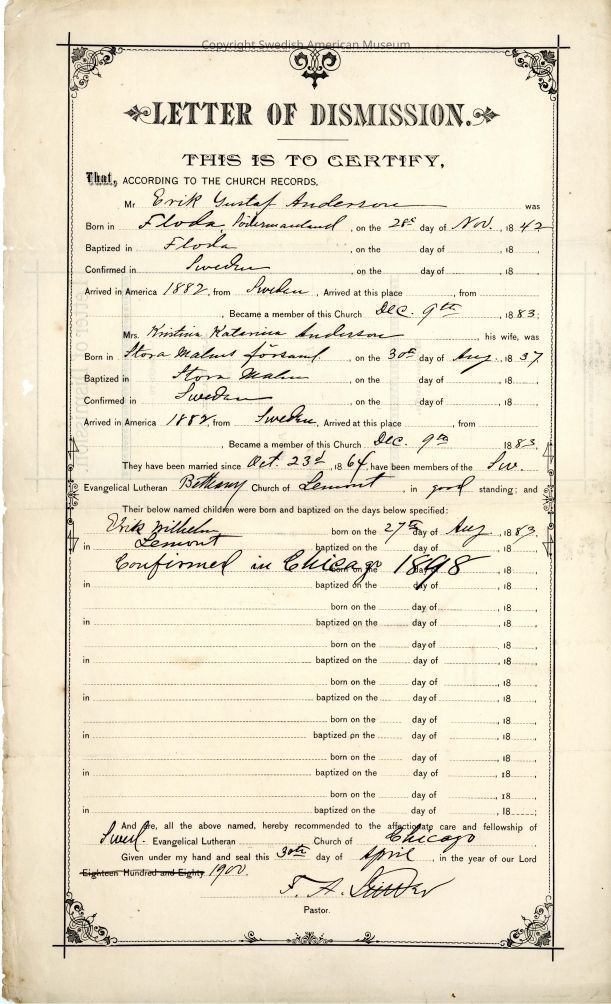 Copyright Swedish American Museum
LETTER OF DISMISSION.
THIS IS TO CERTIFY,
That, ACCORDING TO THE CHURCH RECORDS,
Mr Erik Gustaf Anderson was
Born in Floda, Södermanland, on the 28th day of Nov., 1842
Baptized in Floda, on the day of, 18
Confirmed in Sweden, on the day of, 18
Arrived in America 1882, from Sweden, Arrived at this place, from
, Became a member of this Church Dec. 9th, 1883;
Mrs. Kristina Katarina Anderson, his wife, was
Born in Stora Malms församl, on the 30th day of Aug., 1837
Baptized in Stora Malm, on the day of, 18
Confirmed in Sweden, on the day of, 18
Arrived in America 1882, from Sweden, Arrived at this place, from
, Became a member of this Church Dec. 9th 1883
They have been married since Oct. 23d, 1864, have been members of the Sw.
Evangelical Lutheran Bethany Church of Lemont, in good standing; and
Their below named children were born and baptized on the days below specified:
Erik Wilhelm born on the 27th day of Aug, 1883,
in Lemont baptized on the day of, 18
Confirmed in Chicago 1898 born on the day of, 18
in baptized on the day of, 18
born on the day of, 18
in baptized on the day of, 18
born on the day of, 18
in baptized on the day of, 18
born on the day of, 18
in baptized on the day of, 18
born on the day of, 18
in baptized on the day of, 18
born on the day of, 18
in baptized on the day of, 18
born on the day of, 18
in baptized on the day of, 18;
And are, all the above named, hereby recommended to the affectionate care and fellowship of
Swed. Evangelical Lutheran Church of Chicago
Given under my hand and seal this 30th day of April, in the year of our Lord
Eighteen Hundred and Eighty 1900.
F. A.
Pastor.